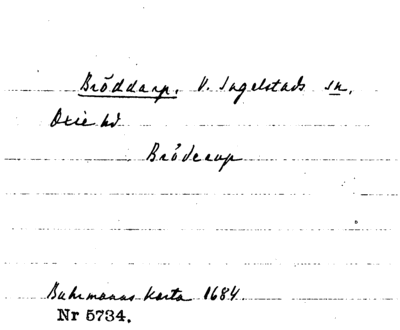 Bröddarp. V. Ingelstads sn,
Oxie hd
Bröderup
Buhrmanns karta 1684.
Nr 5734.